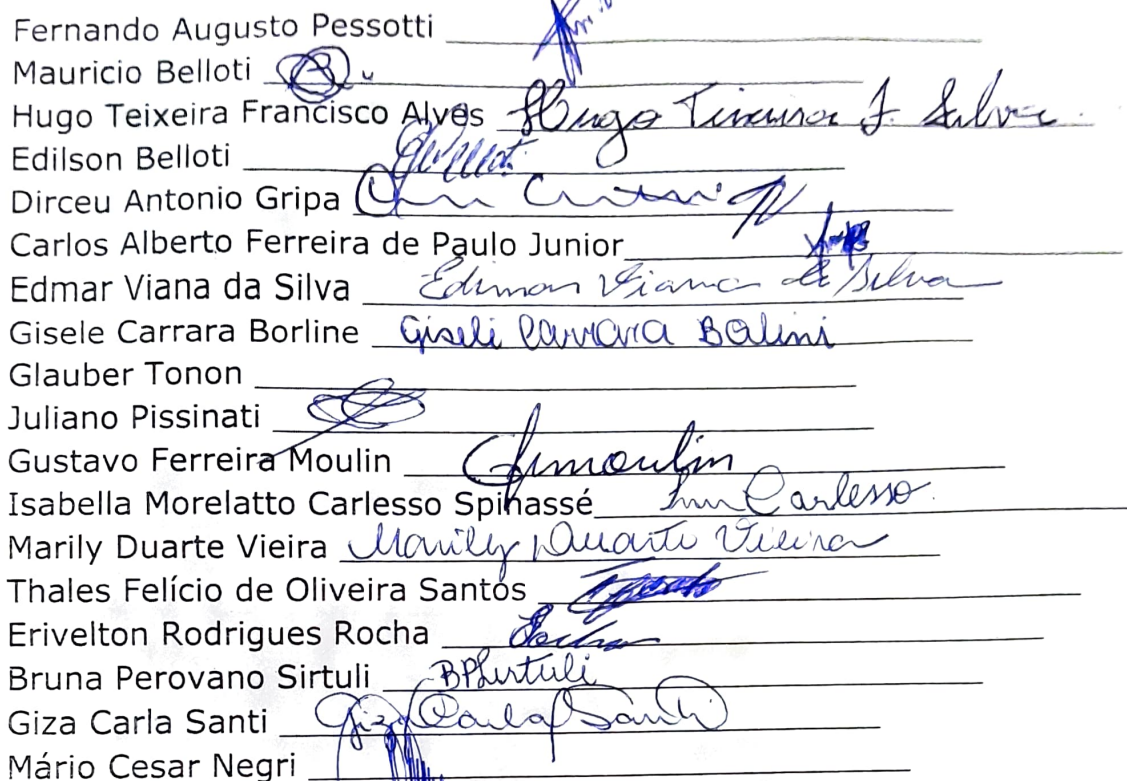 Fernando Augusto Pessotti
Mauricio Belloti
Hugo Teixeira Francisco Alves Hugo Teixeira F. Salves
Edilson Belloti
Dirceu Antonio Gripa
Carlos Alberto Ferreira de Paulo Junior
Edmar Viana da Silva Edimar Viana da Silva
Gisele Carrara Borline Giseli Carrara Balini
Glauber Tonon
Juliano Pissinati
Gustavo Ferreira Moulin Gfmoulin
Isabella Morelatto Carlesso Spinassé Carlesso
Marily Duarte Vieira Marily Duarte Vieira
Thales Felício de Oliveira Santos
Erivelton Rodrigues Rocha
Bruna Perovano Sirtuli BPSirtuli
Giza Carla Santi Giza Carla Santi
Mário Cesar Negri